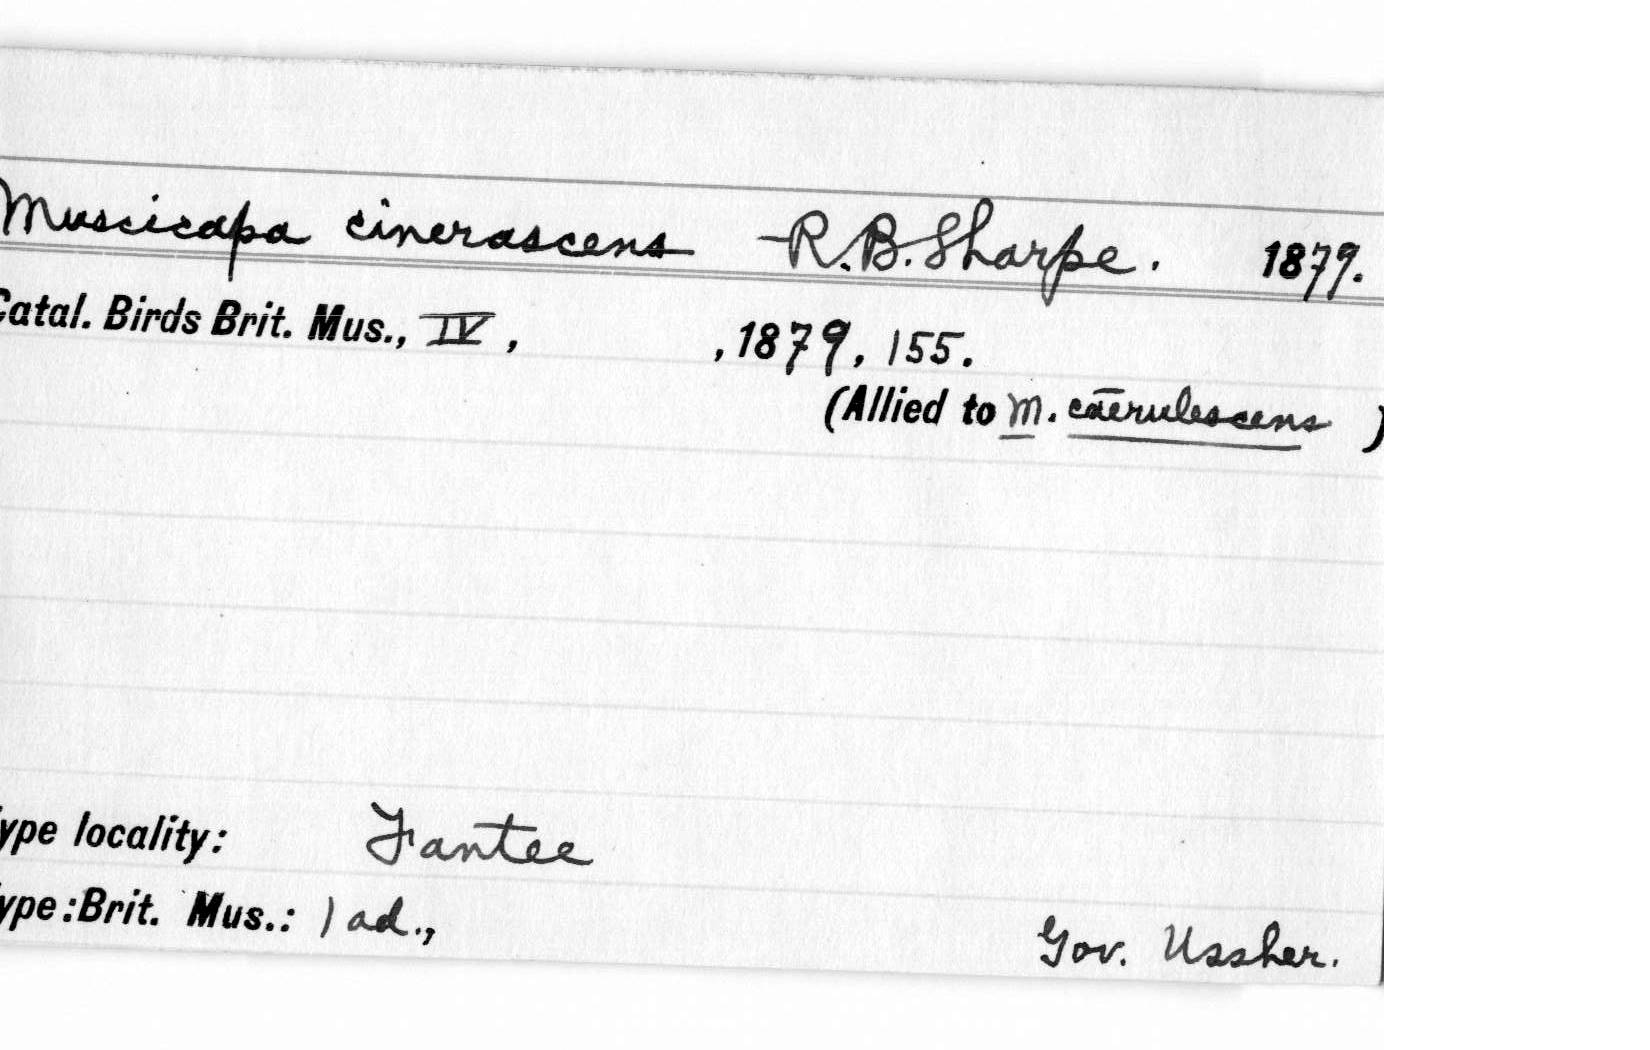 Muscicapa cinerascens R.B. Sharpe. 1879.
Catal. Birds Brit. Mus., IV, , 1879, 155.
(Allied to M. caerulescens )
ype locality: Fantee
ype: Brit. Mus.: 1 ad., Gov. Ussher.